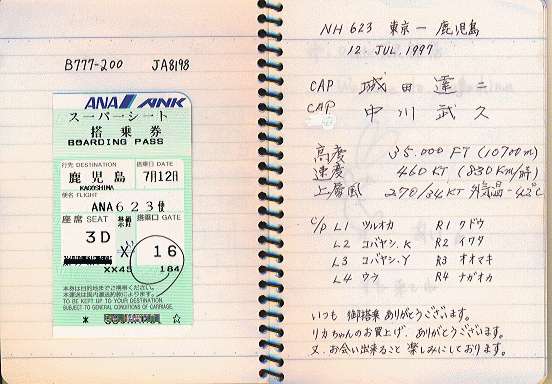 B777-200 JA8198
ANA ANK
スーパーシート
搭乗券
BOARDING PASS
行先 DESTINATION 搭乗日 DATE
鹿児島 7月12日
KAGOSHIMA
便名 FLIGHT
ANA623便
座席 SEAT 搭乗口 GATE
3D 16
XX45 184
本券は目的地までご所持ください。
TO BE KEPT UP TO YOUR DESTINATION.
SUBJECT TO GENERAL CONDITIONS OF CARRIAGE.
NH 623 東京 ― 鹿児島
12. JUL. 1997
CAP 成田 達二
CAP 中川 武久
高度 35.000 FT (10700m)
速度 460 KT (830 Km/時)
上層風 270/34 KT 外気温 -42°C
C/P L1 ツルオカ R1 クドウ
L2 コバヤシ.K R2 イワタ
L3 コバヤシ.Y R3 オオマキ
L4 ウシ R4 ナガオカ
いつも 御搭乗 ありがとうございます。
リカちゃんのお買上げ、ありがとうございます。
又、お会い出来ること 楽しみにしております。